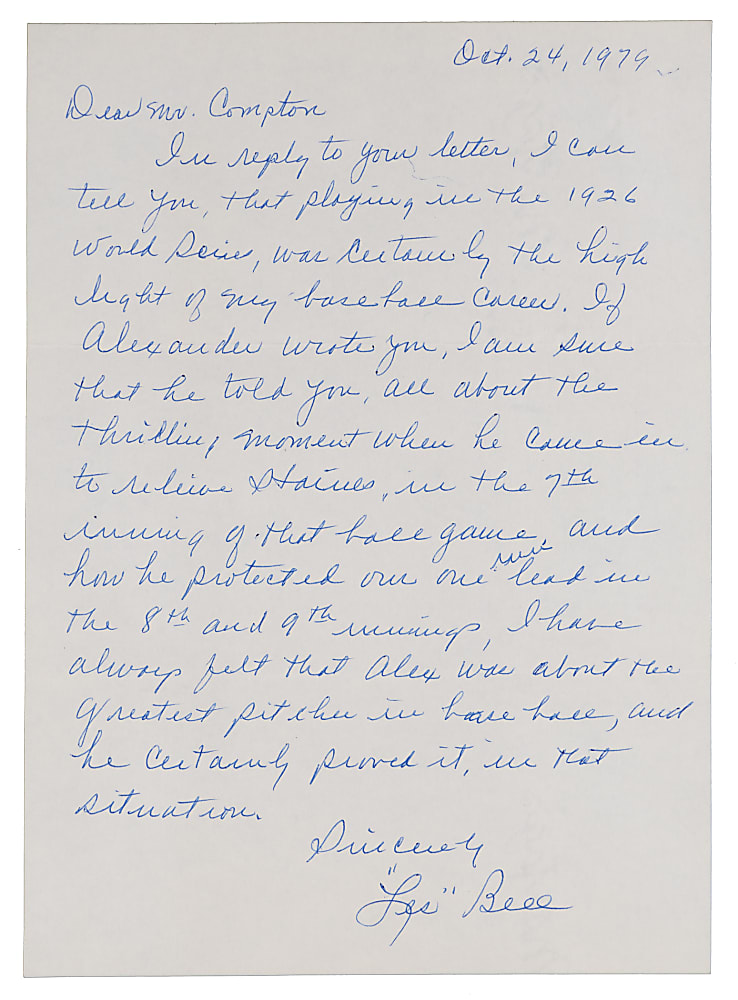 Oct. 24, 1979
Dear Mr. Compton
In reply to your letter, I can
tell you, that playing in the 1926
World Series, was certainly the high
light of my baseball career. If
Alexander wrote you, I am sure
that he told you, all about the
thrilling moment when he came in
to relieve Haines, in the 7th
inning of that ball game, and
how he protected our one run lead in
the 8th and 9th innings, I have
always felt that Alex was about the
greatest pitcher in base ball, and
he certainly proved it, in that
situation.
Sincerely
"Les" Bell